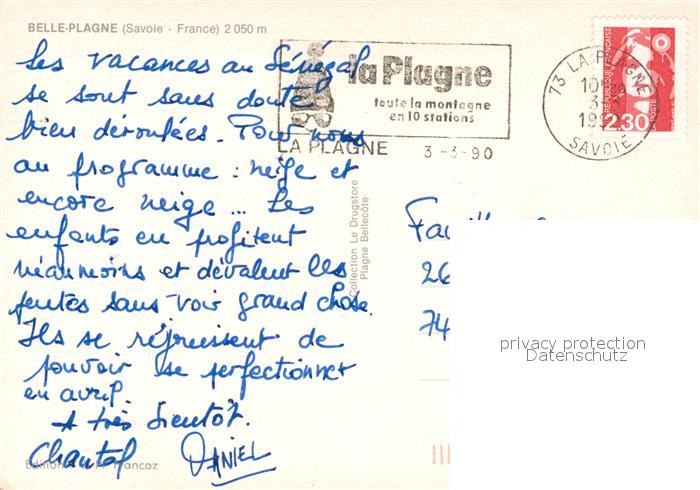 BELLE-PLAGNE (Savoie - France) 2 050 m
Les vacances au Sénégal
se sont sans doute
bien déroulées. Pour nous
au programme : neige et
encore neige ... Les
enfants en profitent
néanmoins et dévalent les
pentes sans voir grand chose.
Ils se réjouissent de
pouvoir se perfectionner
en avril.
A très bientôt.
Chantal DANIEL
la Plagne
toute la montagne
en 10 stations
LA PLAGNE 3-3-90
73 LA PLAGNE
SAVOIE
RÉPUBLIQUE FRANÇAISE
LA POSTE
2.30
Collection Le Drugstore
Plagne Bellecôte
26
74
privacy protection
Datenschutz